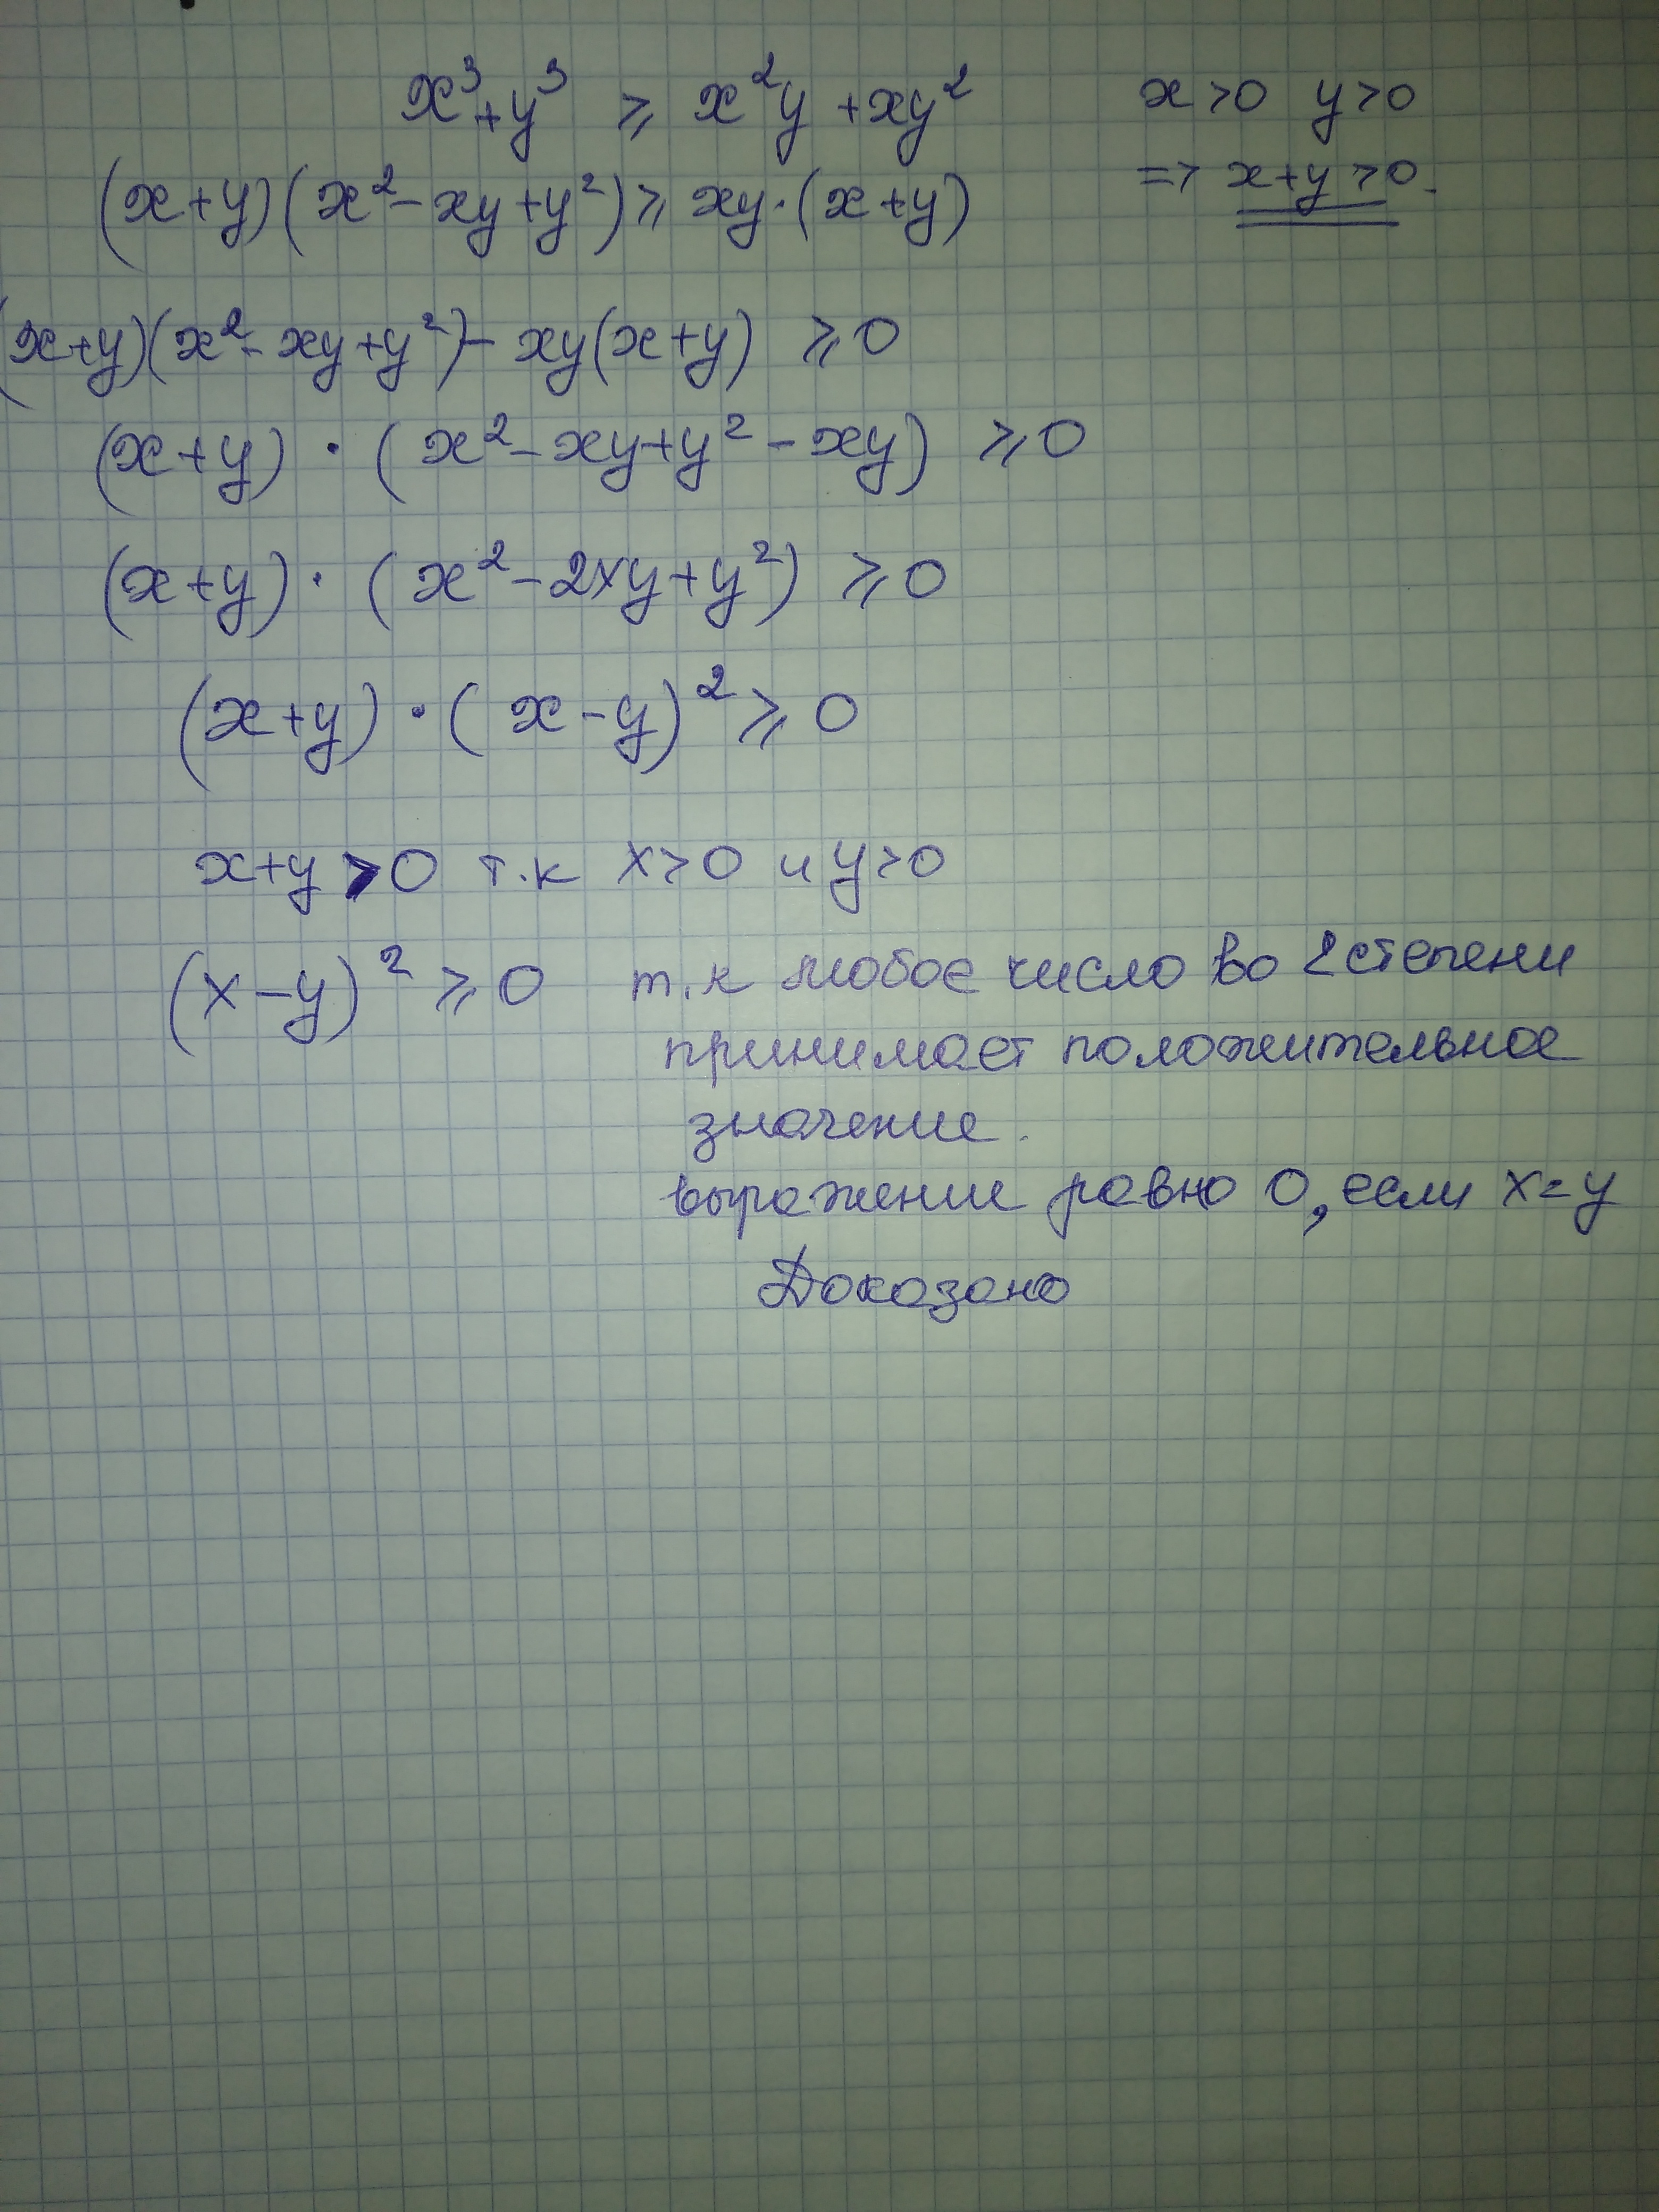 x³+y³ ⩾ x²y+xy² x>0 y>0
(x+y)(x²-xy+y²)⩾xy·(x+y) => x+y>0.
(x+y)(x²-xy+y²)-xy(x+y) ⩾0
(x+y)·(x²-xy+y²-xy) ⩾0
(x+y)·(x²-2xy+y²) ⩾0
(x+y)·(x-y)²⩾0
x+y>0 т.к x>0 и y>0
(x-y)²⩾0 т.к любое число во 2 степени
принимает положительное
значение.
выражение равно 0, если x=y
Доказано